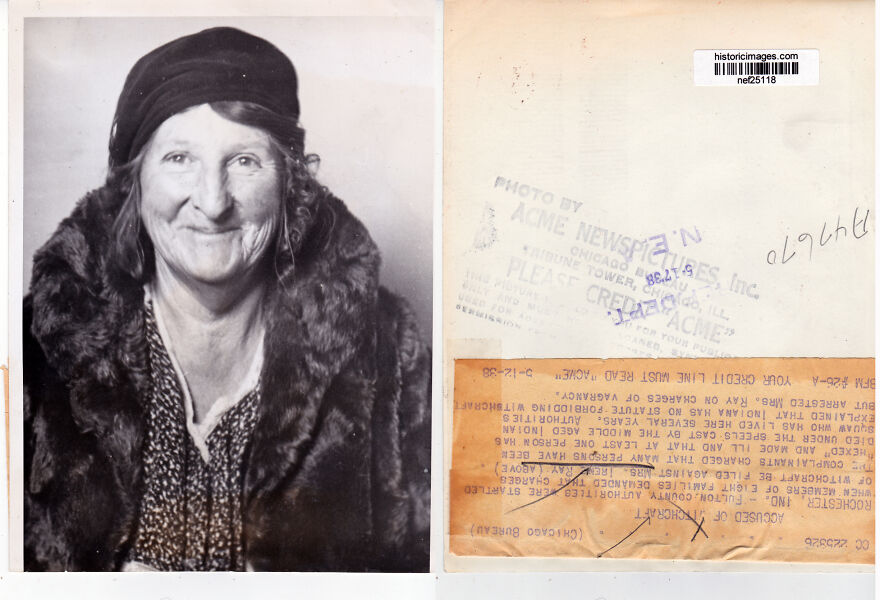 historicimages.com
nef25118
PHOTO BY
ACME NEWSPICTURES, Inc.
CHICAGO BUREAU
TRIBUNE TOWER, CHICAGO, ILL.
PLEASE CREDIT "ACME"
THIS PICTURE
ONLY AND MUST FOR YOUR PUBLIC
USED FOR LOANED,
PERMISSION
N.E.
5-17 38
DEPT.
A47670
CC 225326 (CHICAGO BUREAU)
ACCUSED OF WITCHCRAFT
ROCHESTER, IND. - FULTON COUNTY AUTHORITIES WERE STARTLED
WHEN MEMBERS OF EIGHT FAMILIES DEMANDED THAT CHARGES
OF WITCHCRAFT BE FILED AGAINST MRS. IRENE RAY (ABOVE).
THE COMPLAINANTS CHARGED THAT MANY PERSONS HAVE BEEN
"HEXED" AND MADE ILL AND THAT AT LEAST ONE PERSON HAS
DIED UNDER THE SPEELS CAST BY THE MIDDLE AGED INDIAN
SQUAW WHO HAS LIVED HERE SEVERAL YEARS. AUTHORITIES
EXPLAINED THAT INDIANA HAS NO STATUTE FORBIDDING WITCHCRAFT
BUT ARRESTED MRS. RAY ON CHARGES OF VAGRANCY.
BFM #26-A YOUR CREDIT LINE MUST READ "ACME" 5-12-38